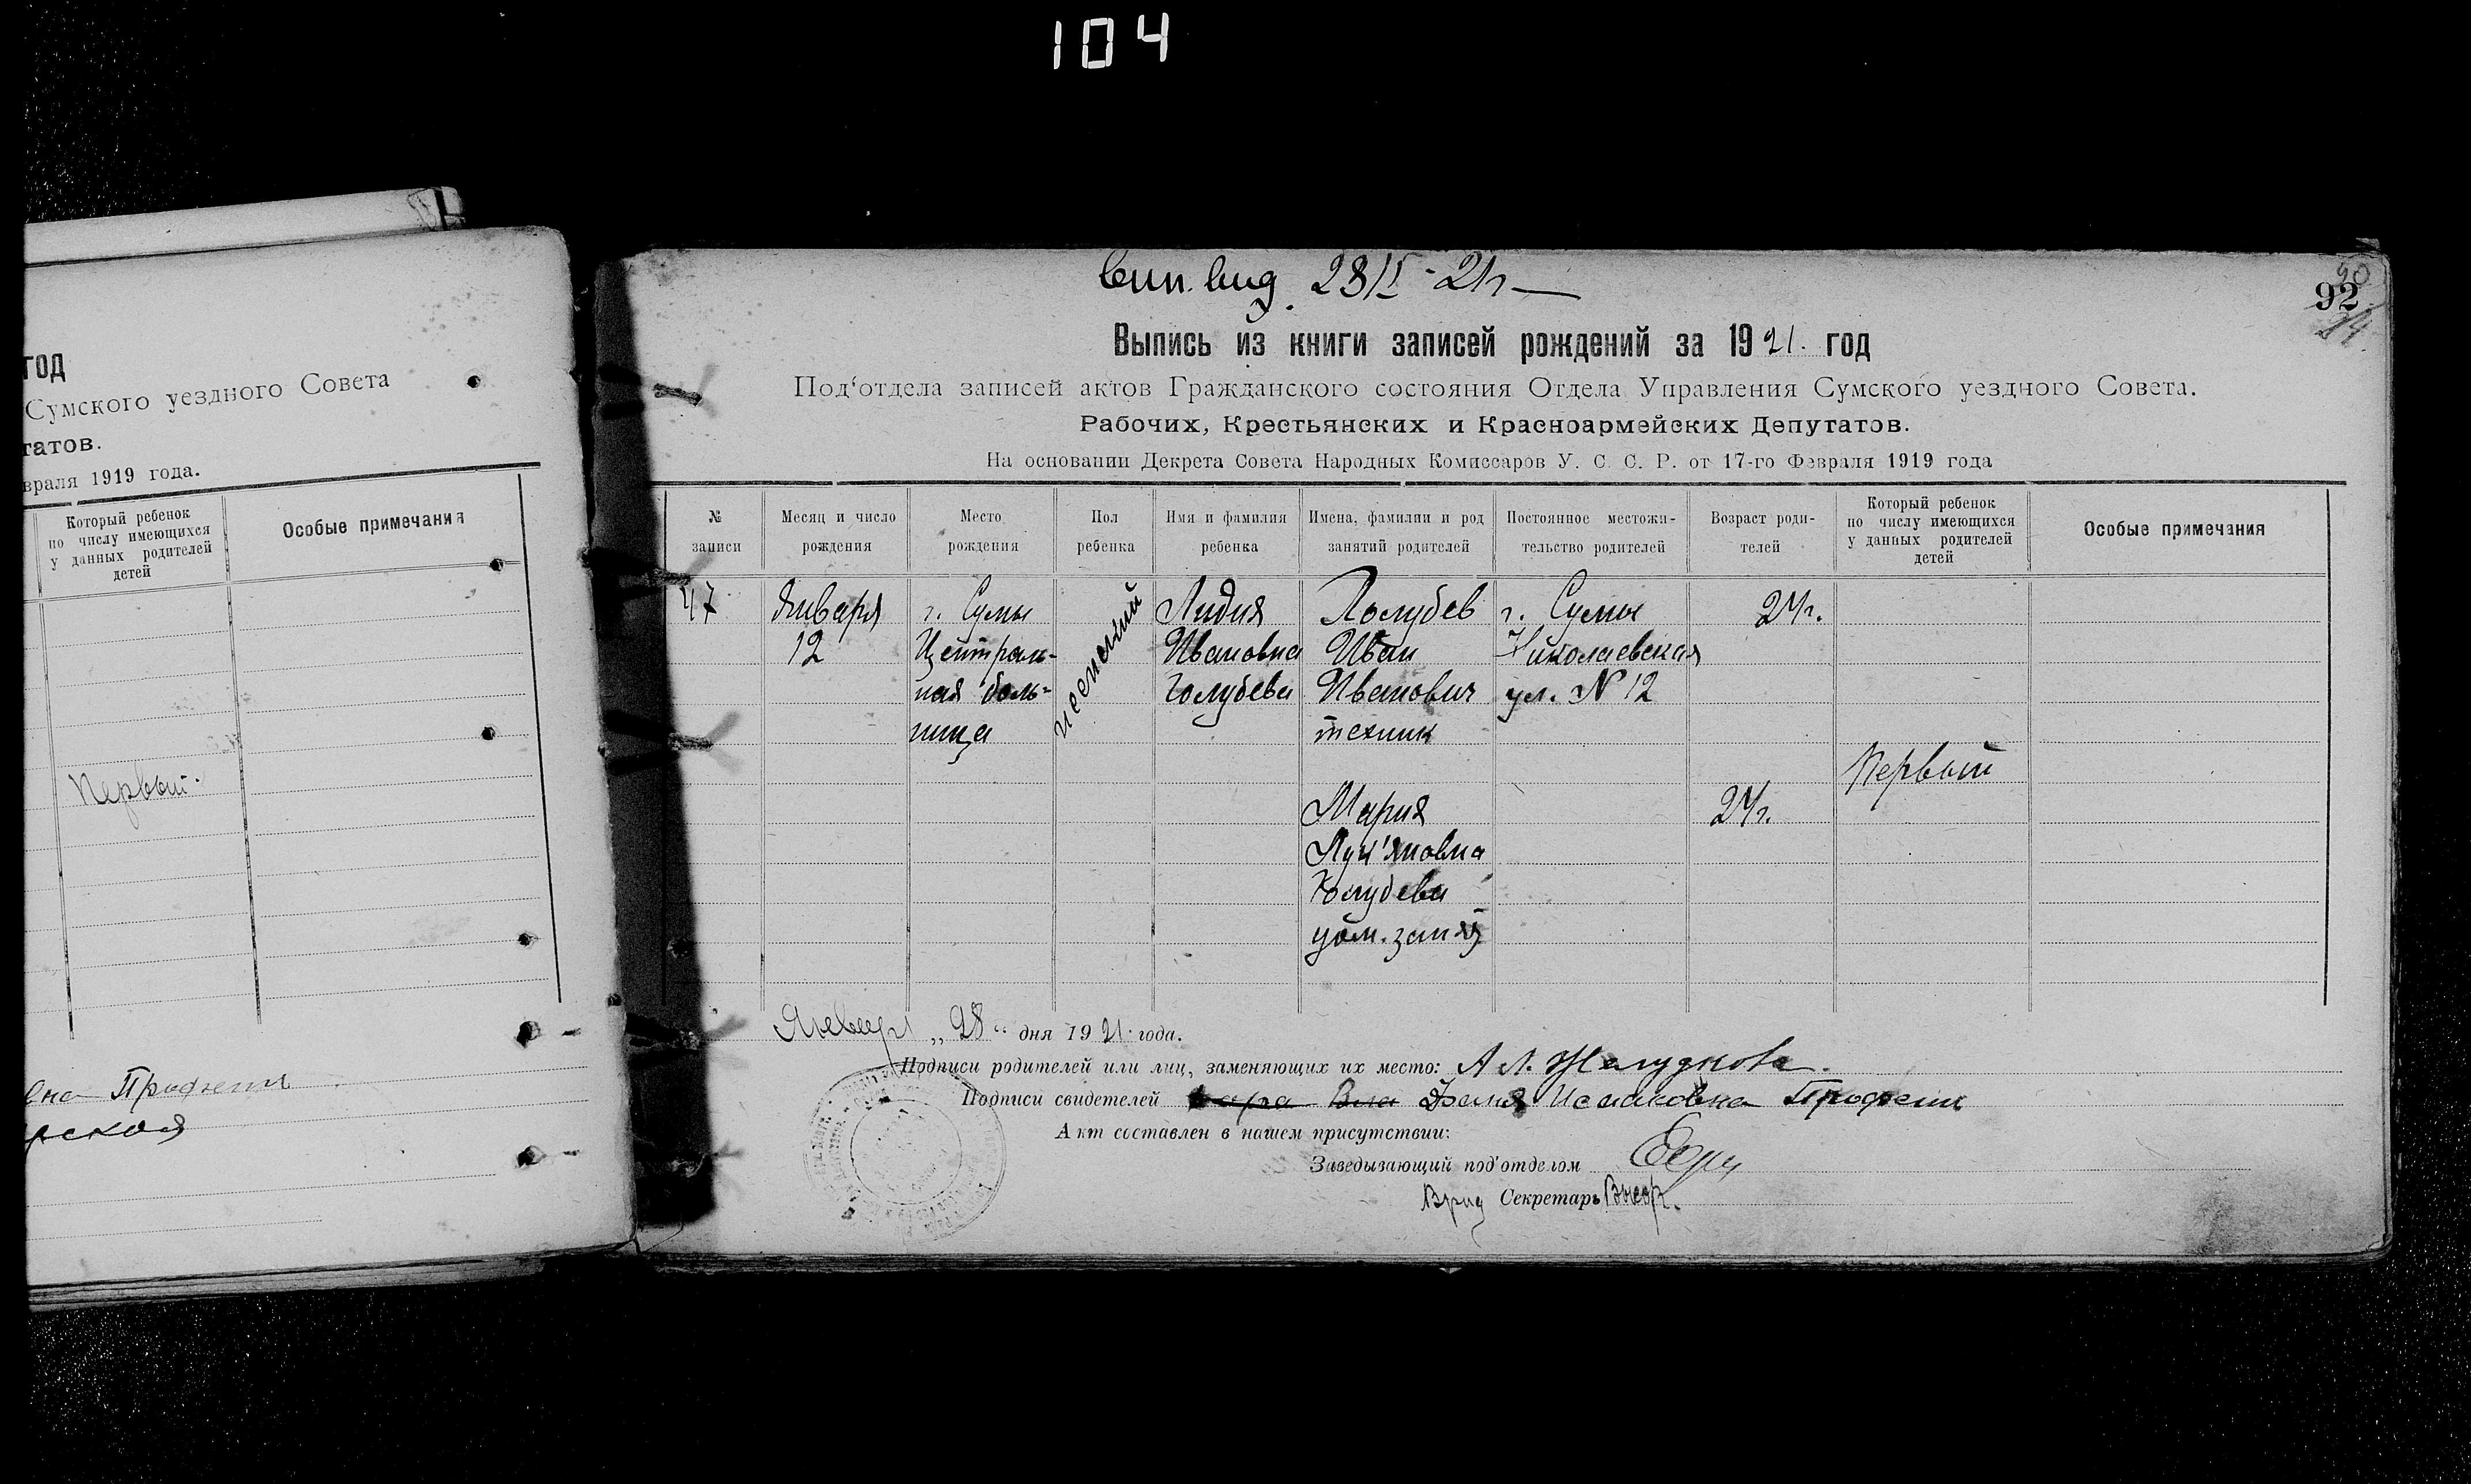 104
год
Сумского уездного Совета
татов.
враля 1919 года.
Который ребенок
по числу имеющихся
у данных родителей
детей
Особые примечания
Первый.
вна
рская
92
Выпись из книги записей рождений за 1921. год
Под‘отдела записей актов Гражданского состояния Отдела Управления Сумского уездного Совета.
Рабочих, Крестьянских и Красноармейских Депутатов.
На основании Декрета Совета Народных Комиссаров У. С. С. Р. от 17-го Февраля 1919 года
№
записи
Месяц и число
рождения
Место
рождения
Пол
ребенка
Имя и фамилия
ребенка
Имена, фамилии и род
занятий родителей
Постоянное местожи-
тельство родителей
Возраст роди-
телей
Который ребенок
по числу имеющихся
у данных родителей
детей
Особые примечания
47
Января
12
г. Сумы
Централь-
ная боль-
ница
женский
Лидия
Ивановна
Голубева
Голубев
Иван
Иванович
техник
Мария
Лук'яновна
Голубева
дом. занят
г. Сумы
Николаевская
ул. № 12
24г.
24г.
Первый
Января „28“ дня 1921. года.
Подписи родителей или лиц, заменяющих их место: А Л.
Подписи свидетелей Исааковна
Акт составлен в нашем присутствии:
Заведывающий под‘отделом
Врид Секретарь